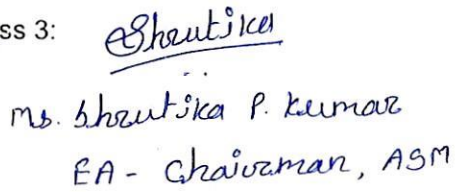 ss 3:
Shrutika
Ms. Shrutika P. Kumar
EA - Chairman, ASM